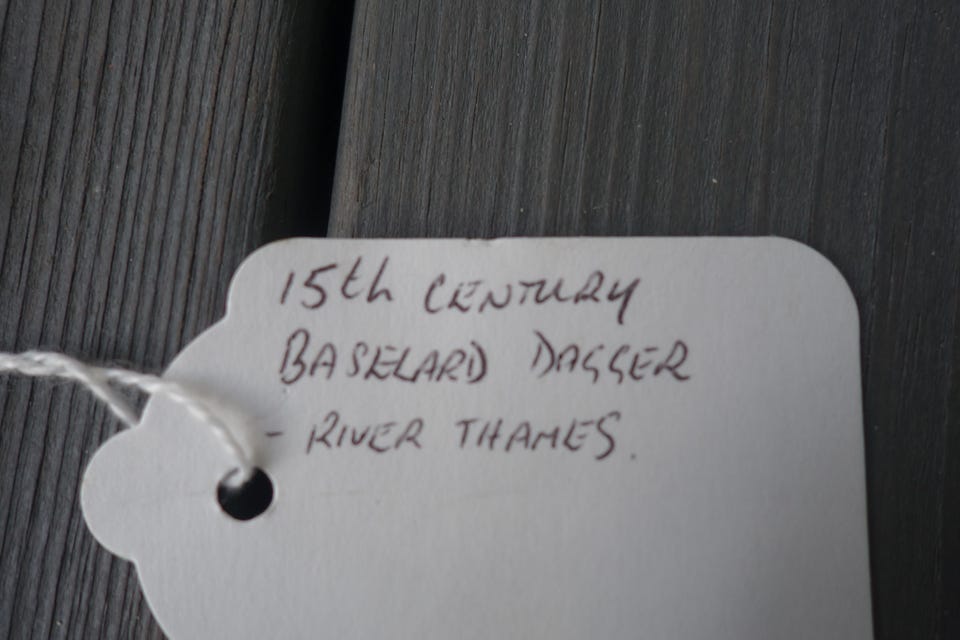 15th CENTURY
BASELARD DAGGER
- RIVER THAMES.